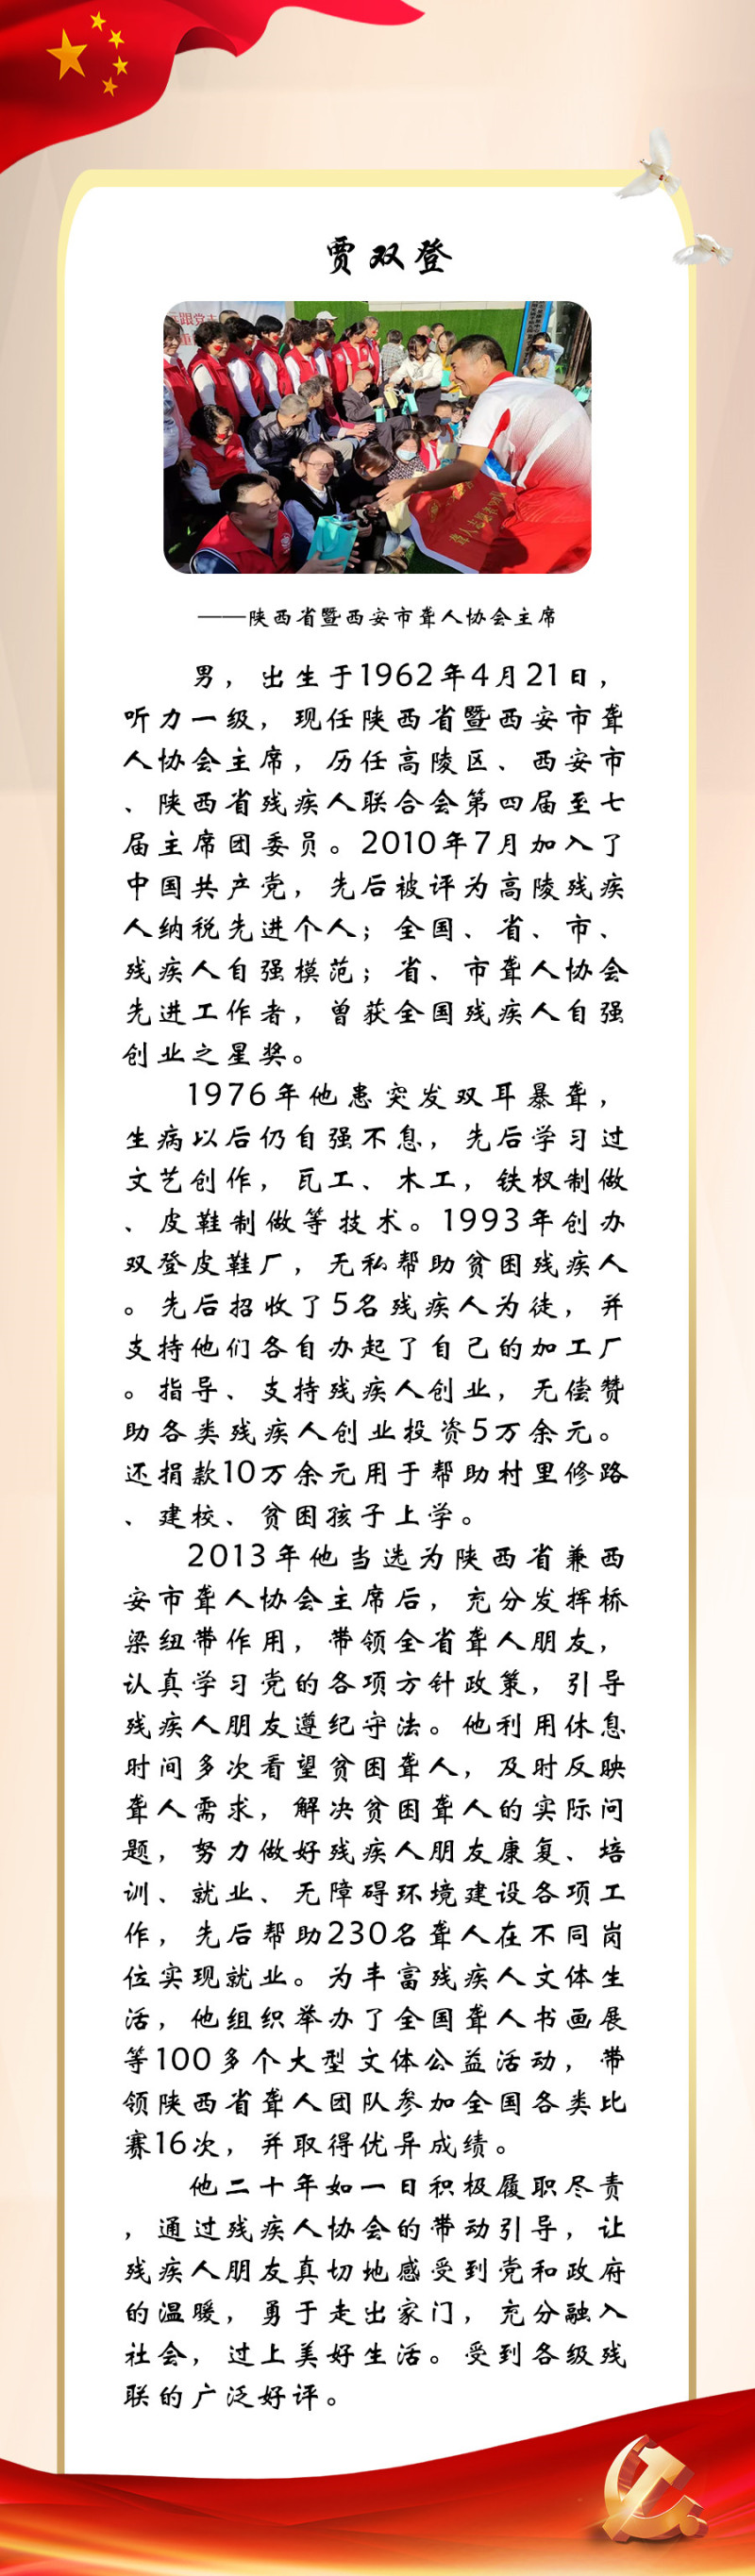 贾双登
聋人志愿者
——陕西省暨西安市聋人协会主席
男，出生于1962年4月21日，
听力一级，现任陕西省暨西安市聋
人协会主席，历任高陵区、西安市
、陕西省残疾人联合会第四届至七
届主席团委员。2010年7月加入了
中国共产党，先后被评为高陵残疾
人纳税先进个人；全国、省、市、
残疾人自强模范；省、市聋人协会
先进工作者，曾获全国残疾人自强
创业之星奖。
1976年他患突发双耳暴聋，
生病以后仍自强不息，先后学习过
文艺创作，瓦工、木工，铁杈制做
、皮鞋制做等技术。1993年创办
双登皮鞋厂，无私帮助贫困残疾人
。先后招收了5名残疾人为徒，并
支持他们各自办起了自己的加工厂
。指导、支持残疾人创业，无偿赞
助各类残疾人创业投资5万余元。
还捐款10万余元用于帮助村里修路
、建校、贫困孩子上学。
2013年他当选为陕西省兼西
安市聋人协会主席后，充分发挥桥
梁纽带作用，带领全省聋人朋友，
认真学习党的各项方针政策，引导
残疾人朋友遵纪守法。他利用休息
时间多次看望贫困聋人，及时反映
聋人需求，解决贫困聋人的实际问
题，努力做好残疾人朋友康复、培
训、就业、无障碍环境建设各项工
作，先后帮助230名聋人在不同岗
位实现就业。为丰富残疾人文体生
活，他组织举办了全国聋人书画展
等100多个大型文体公益活动，带
领陕西省聋人团队参加全国各类比
赛16次，并取得优异成绩。
他二十年如一日积极履职尽责
，通过残疾人协会的带动引导，让
残疾人朋友真切地感受到党和政府
的温暖，勇于走出家门，充分融入
社会，过上美好生活。受到各级残
联的广泛好评。